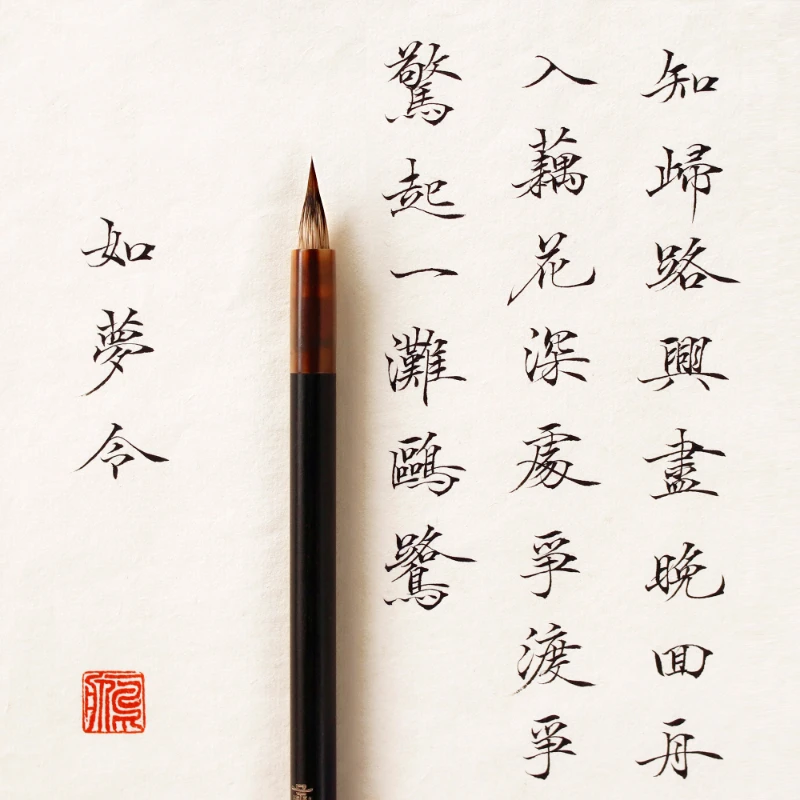 知歸路興盡晚囬舟
入藕花深處爭渡爭
驚起一灘鷗鷺
如夢令